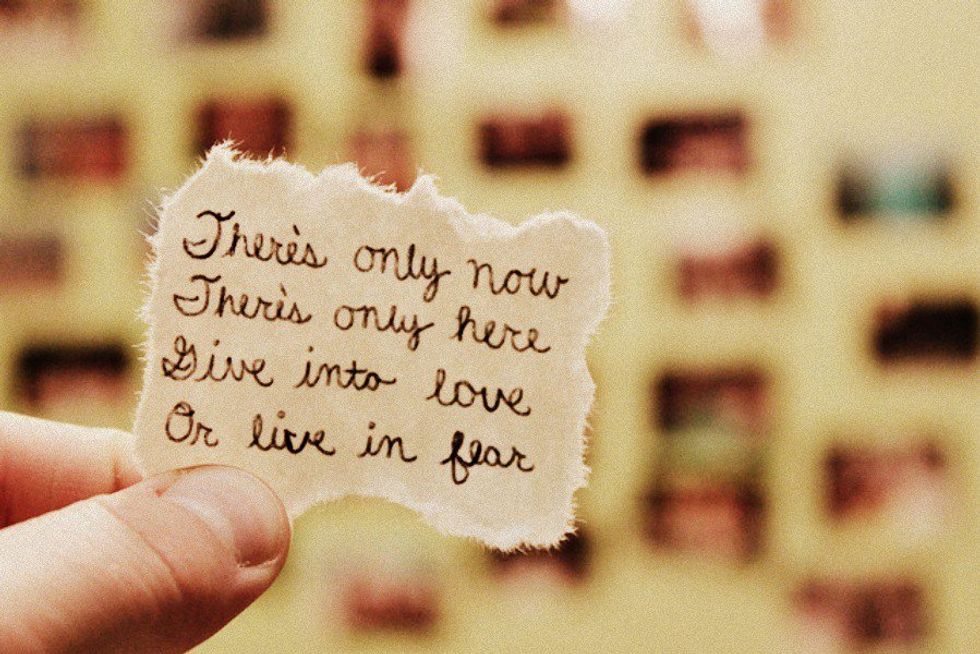 There's only now
There's only here
Give into love
Or live in fear